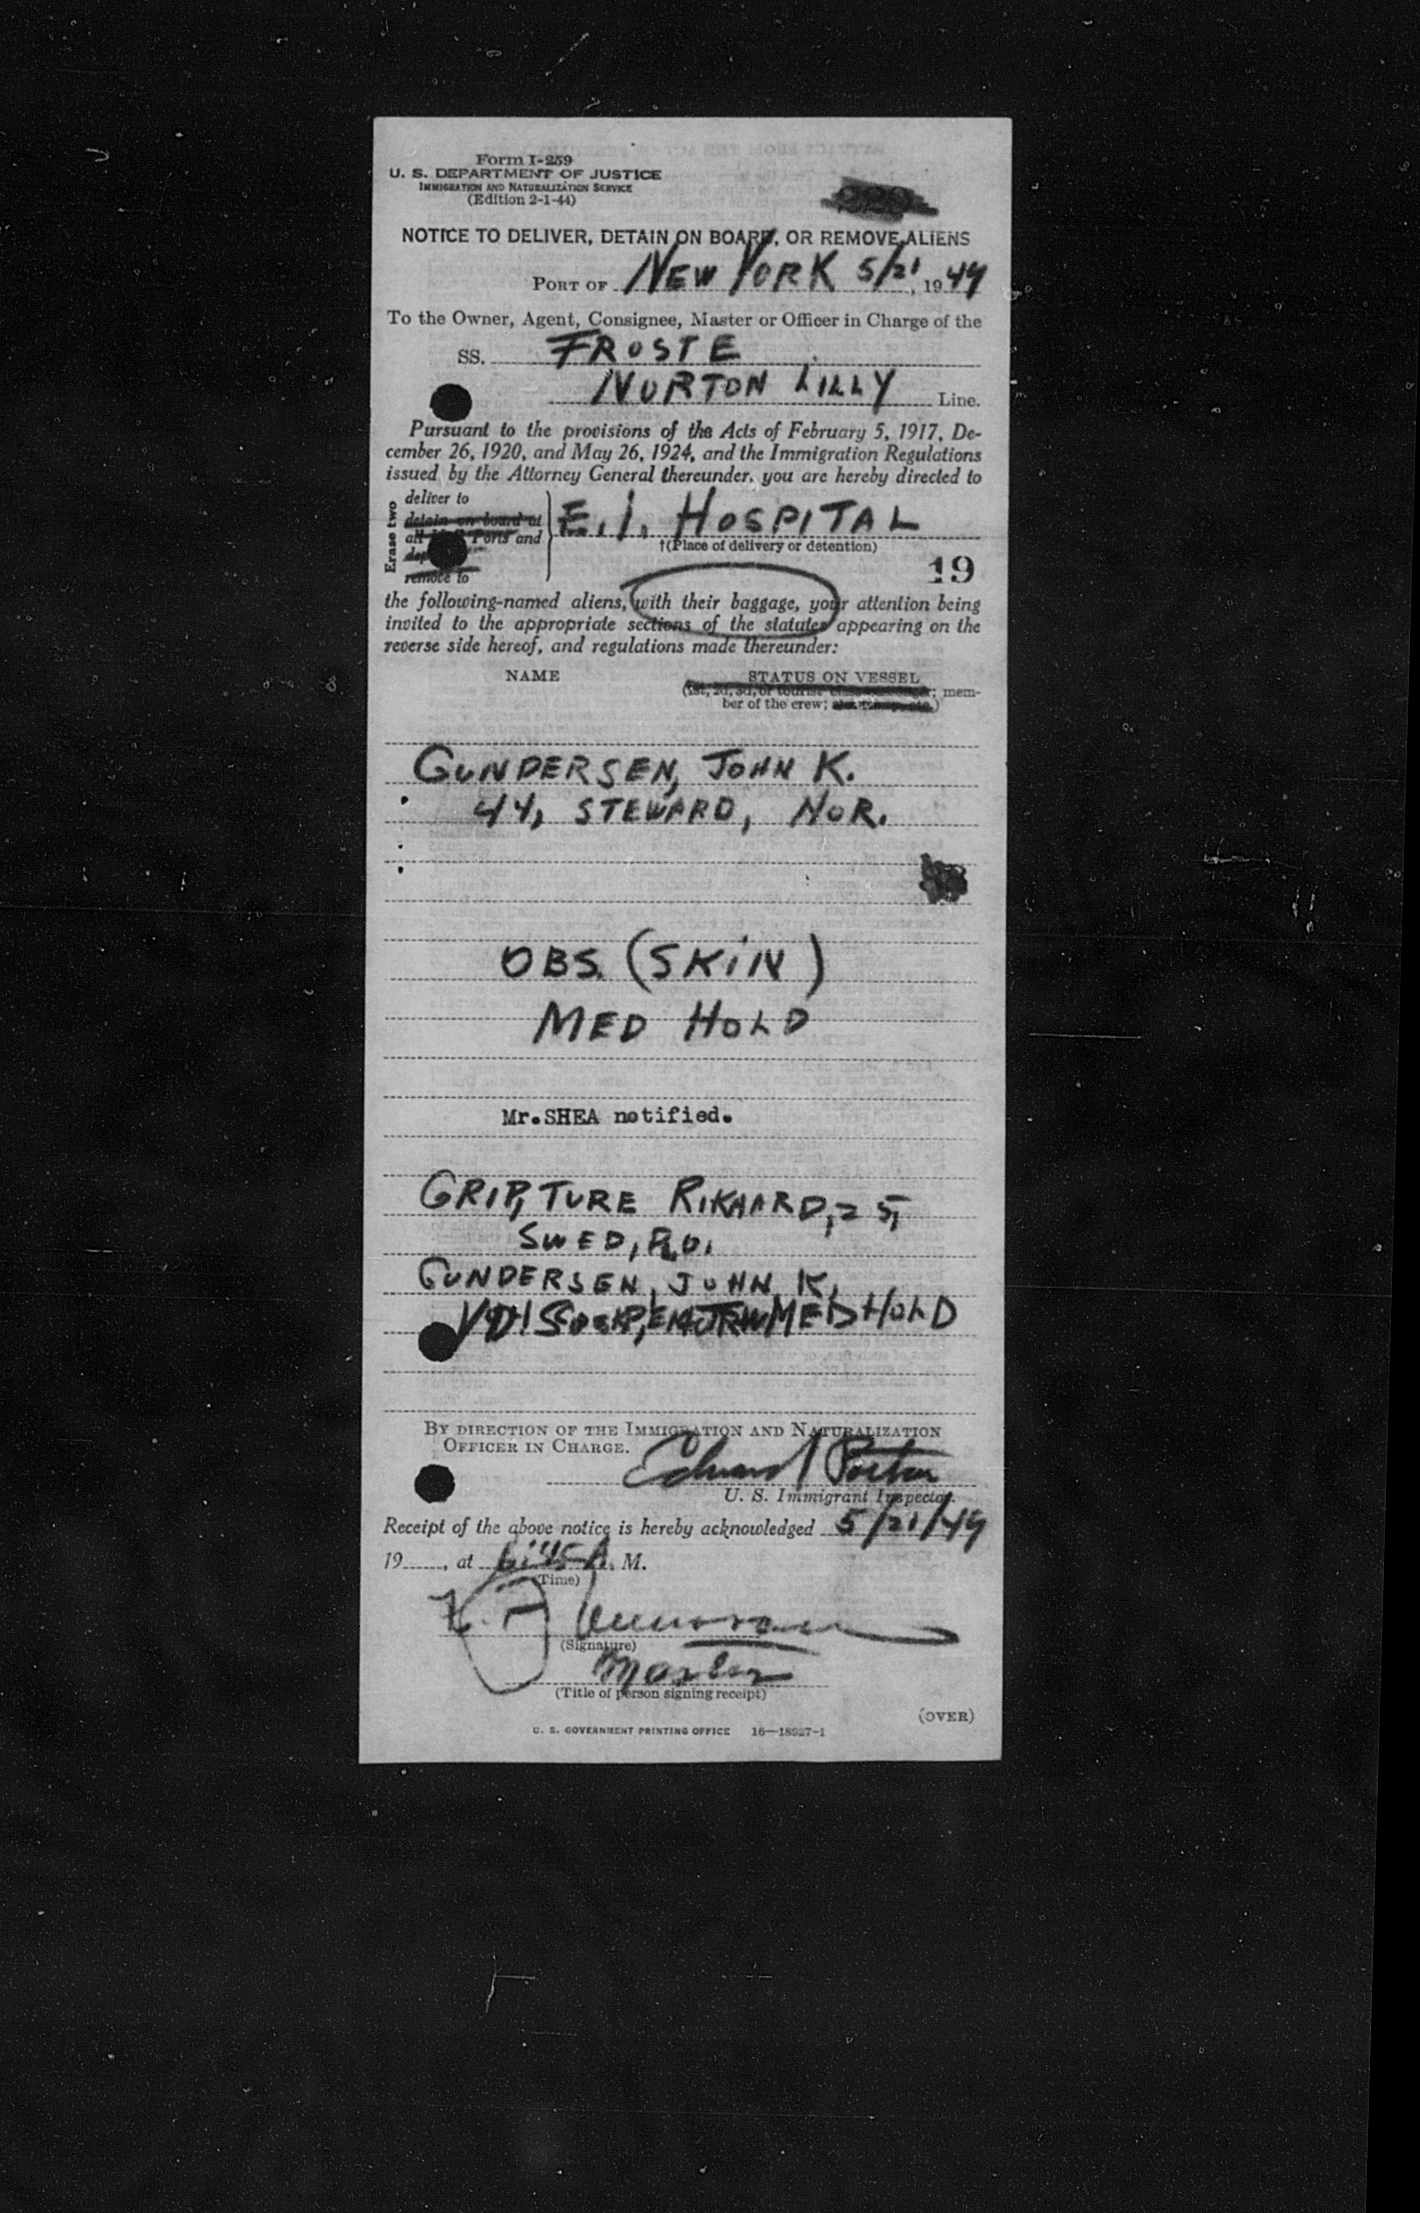 Form I-259
U. S. DEPARTMENT OF JUSTICE
IMMIGRATION AND NATURALIZATION SERVICE
(Edition 2-1-44)
NOTICE TO DELIVER, DETAIN ON BOARD, OR REMOVE ALIENS
PORT OF NEW YORK 5/21, 1949
To the Owner, Agent, Consignee, Master or Officer in Charge of the
SS. FROSTE
NORTON LILLY Line.
Pursuant to the provisions of the Acts of February 5, 1917, De-
cember 26, 1920, and May 26, 1924, and the Immigration Regulations
issued by the Attorney General thereunder, you are hereby directed to
Erase two
deliver to
detain on board at
all Ports and
remove to
E.I. HOSPITAL
†(Place of delivery or detention)
19
the following-named aliens, with their baggage, your attention being
invited to the appropriate sections of the statutes appearing on the
reverse side hereof, and regulations made thereunder:
NAME STATUS ON VESSEL
(1st, 2d, 3d, or tourist ; mem-
ber of the crew; )
GUNDERSEN, JOHN K.
44, STEWARD, NOR.
OBS. (SKIN)
MED HOLD
Mr.SHEA notified.
GRIP, TURE RIKHARD, 25,
SWED,
GUNDERSEN, JOHN K.
MED HOLD
BY DIRECTION OF THE IMMIGRATION AND NATURALIZATION
OFFICER IN CHARGE.
Edward
U. S. Immigrant Inspector.
Receipt of the above notice is hereby acknowledged 5/21/49
19, at 6:45 A. M.
(Time)
(Signature)
Master
(Title of person signing receipt)
(OVER)
U. S. GOVERNMENT PRINTING OFFICE 16—18927-1